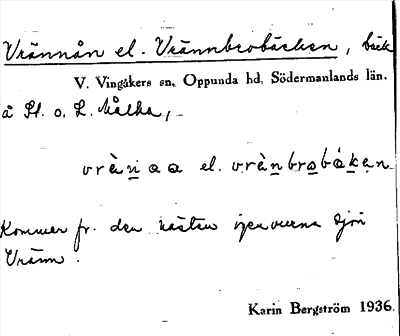 Vrännån el. Vrännbrobäcken, bäck
V. Vingåkers sn, Oppunda hd, Södermanlands län.
å St. o. L. Målka,
vrànaa el. vrànbrobäkan
Kommer fr. den nästan igenvuxna sjön
Vränn.
Karin Bergström 1936.